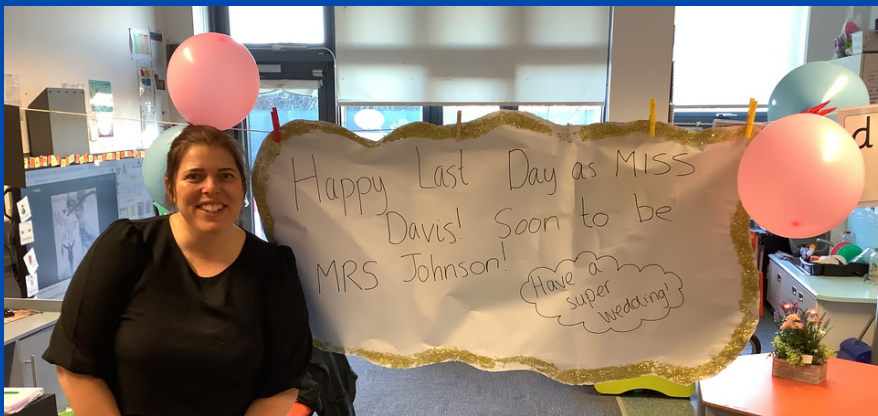 Happy Last Day as MISS
Davis! Soon to be
MRS Johnson!
Have a
super
wedding!
d